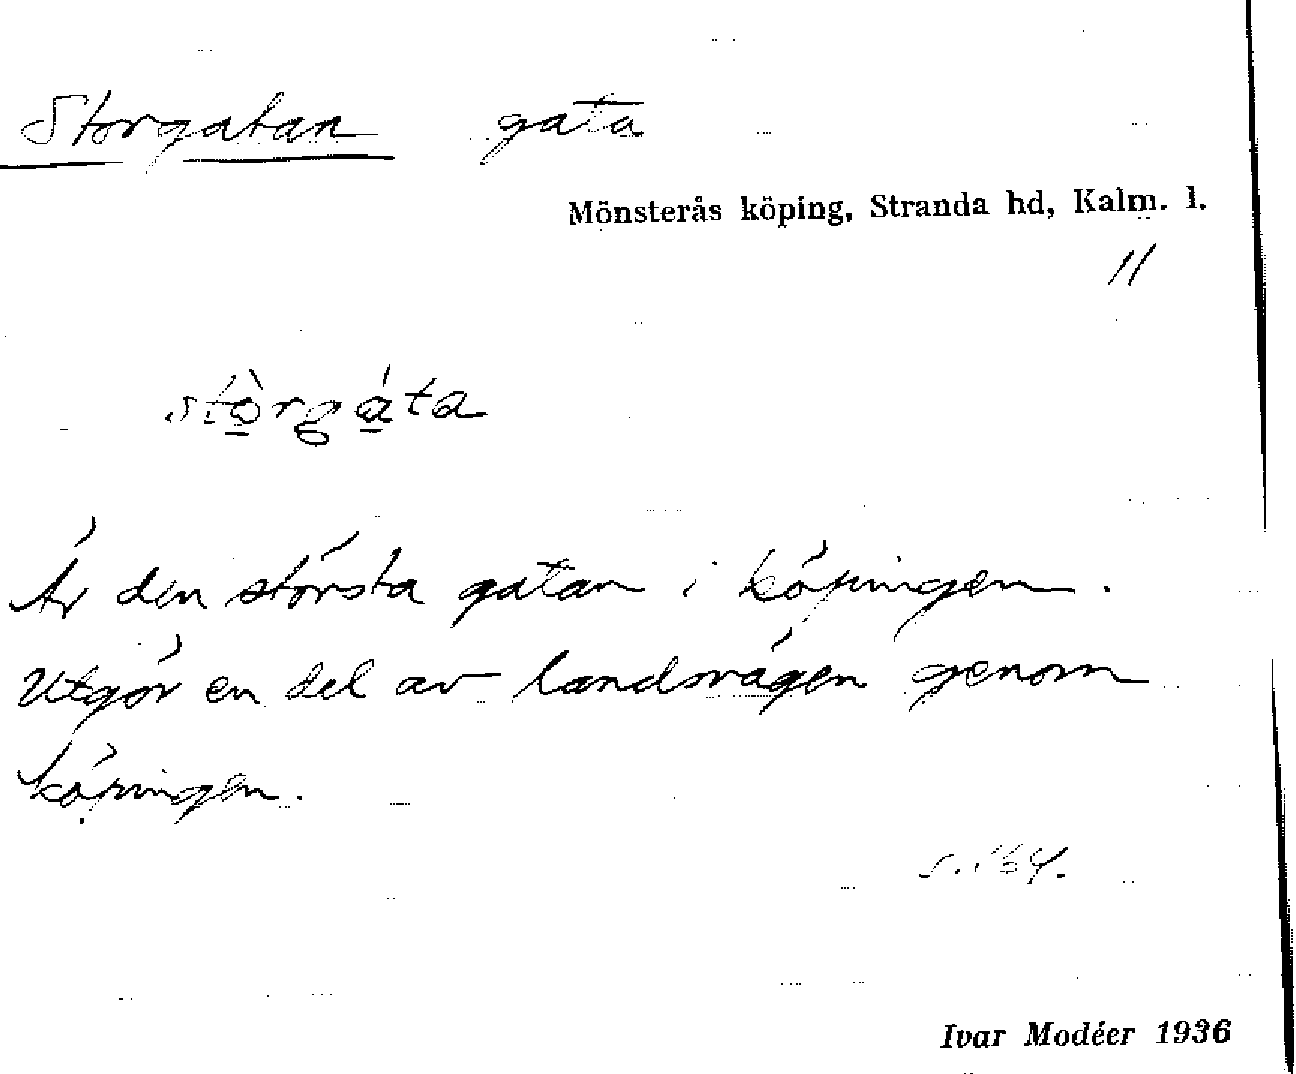 Storgatan gata
Mönsterås köping, Stranda hd, Kalm. l.
11
stò̲rgá̲ta
Är den största gatan i köpingen.
Utgör en del av landsvägen genom
köpingen.
s. 164.
Ivar Modéer 1936